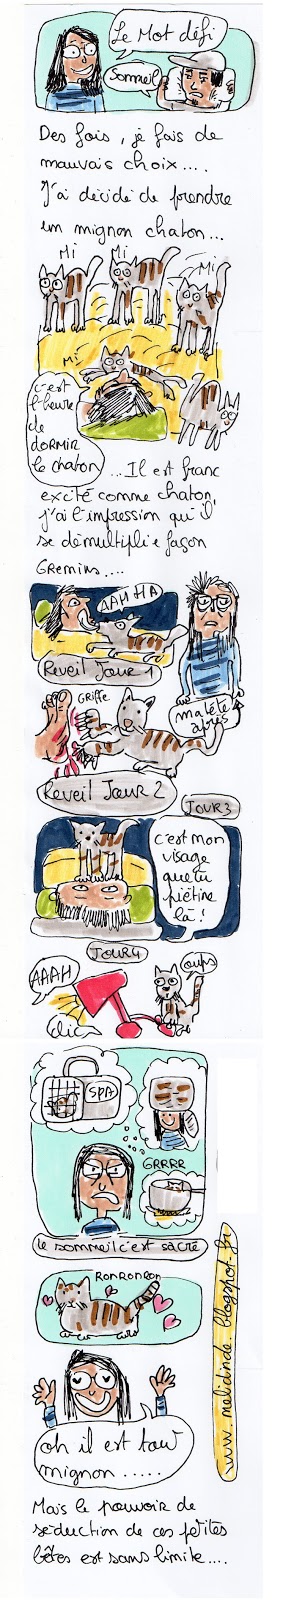 Le Mot défi
Sommeil
Des fois, je fais de
mauvais choix....
J'ai décidé de prendre
un mignon chaton...
Mi
Mi
Mi
Mi
c'est
l'heure
de
DORMIR
le chaton
...Il est franc
excité comme chaton,
j'ai l'impression qu'il
se démultiplie façon
Gremlins....
AAH HA
Reveil Jour 1
ma tête
après
Griffe
Reveil Jour 2
Jour 3
c'est mon
visage
que tu
piétine
là !
Jour 4
AAAH
oups
Clic
SPA
GRRRR
le sommeil c'est sacré
RonRonRon
oh il est trow
mignon .....
www.melidinde.blogspot.fr
Mais le pouvoir de
séduction de ces petites
bêtes est sans limite....